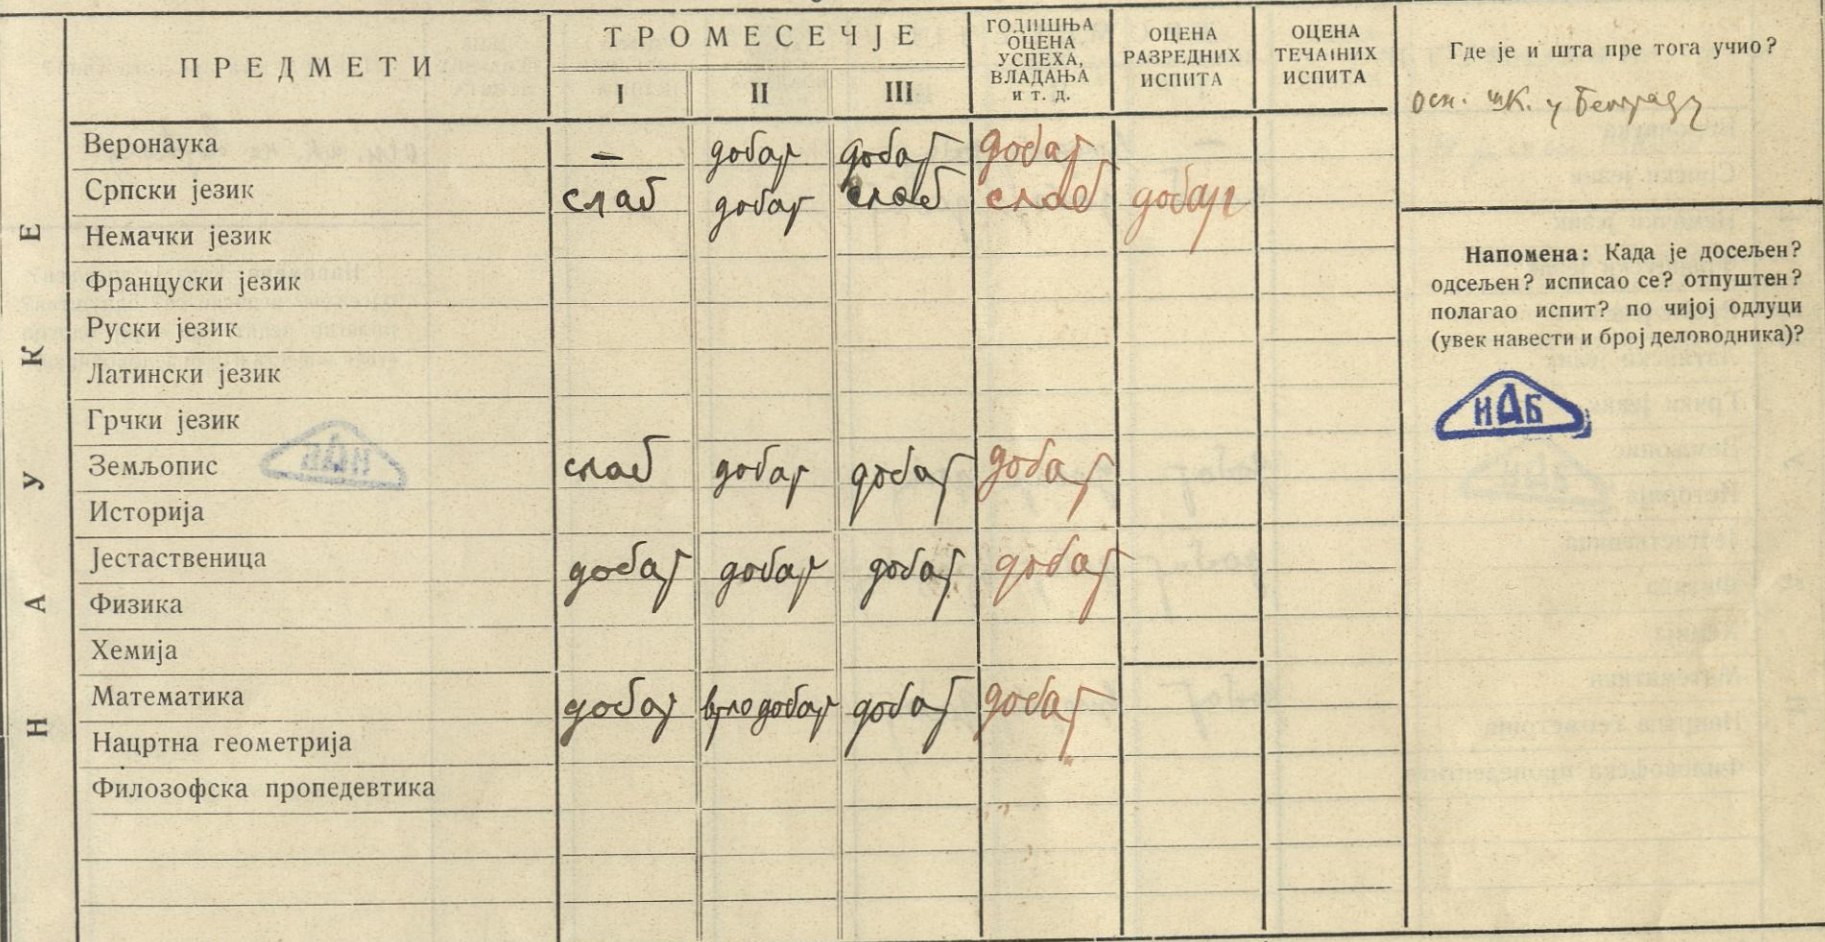 ПРЕДМЕТИ
ТРОМЕСЕЧЈЕ
I II III
ГОДИШЊА
ОЦЕНА
УСПЕХА,
ВЛАДАЊА
и т. д.
ОЦЕНА
РАЗРЕДНИХ
ИСПИТА
ОЦЕНА
ТЕЧАЈНИХ
ИСПИТА
Где је и шта пре тога учио?
Осн. шк. у Београду
НАУКЕ
Веронаука — добар добар добар
Српски језик слаб добар слаб слаб добар
Немачки језик
Француски језик
Руски језик
Латински језик
Грчки језик
Земљопис слаб добар добар добар
Историја
Јестаственица добар добар добар добар
Физика
Хемија
Математика добар врло добар добар добар
Нацртна геометрија
Филозофска пропедевтика
Напомена: Када је досељен?
одсељен? исписао се? отпуштен?
полагао испит? по чијој одлуци
(увек навести и број деловодника)?
ИАБ